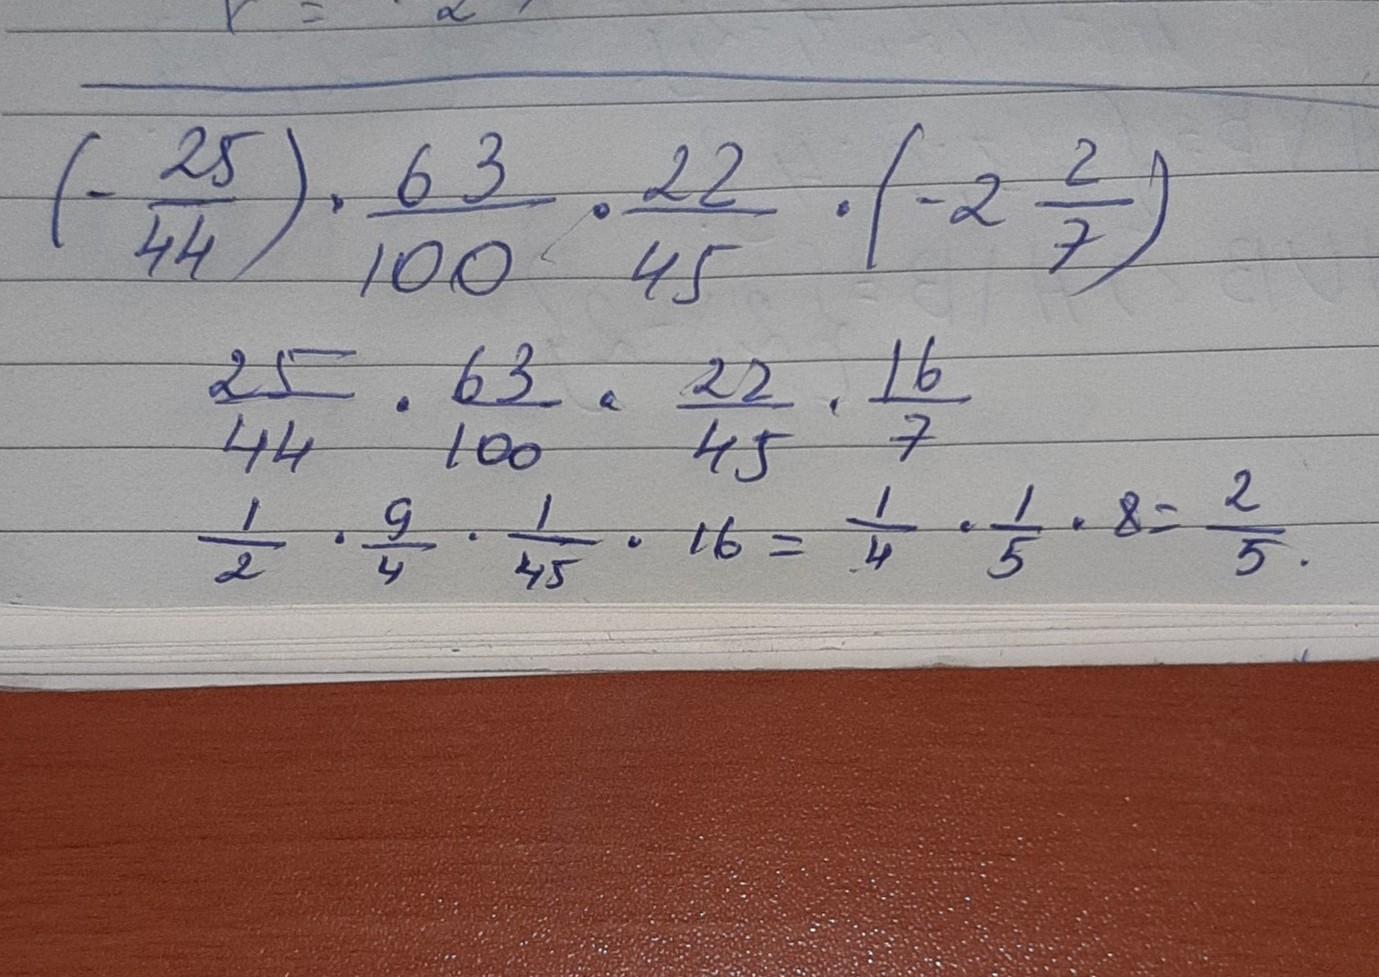 r = 2
(- 25/44) · 63/100 · 22/45 · (-2 2/7)
25/44 · 63/100 · 22/45 · 16/7
1/2 · 9/4 · 1/45 · 16 = 1/4 · 1/5 · 8 = 2/5.